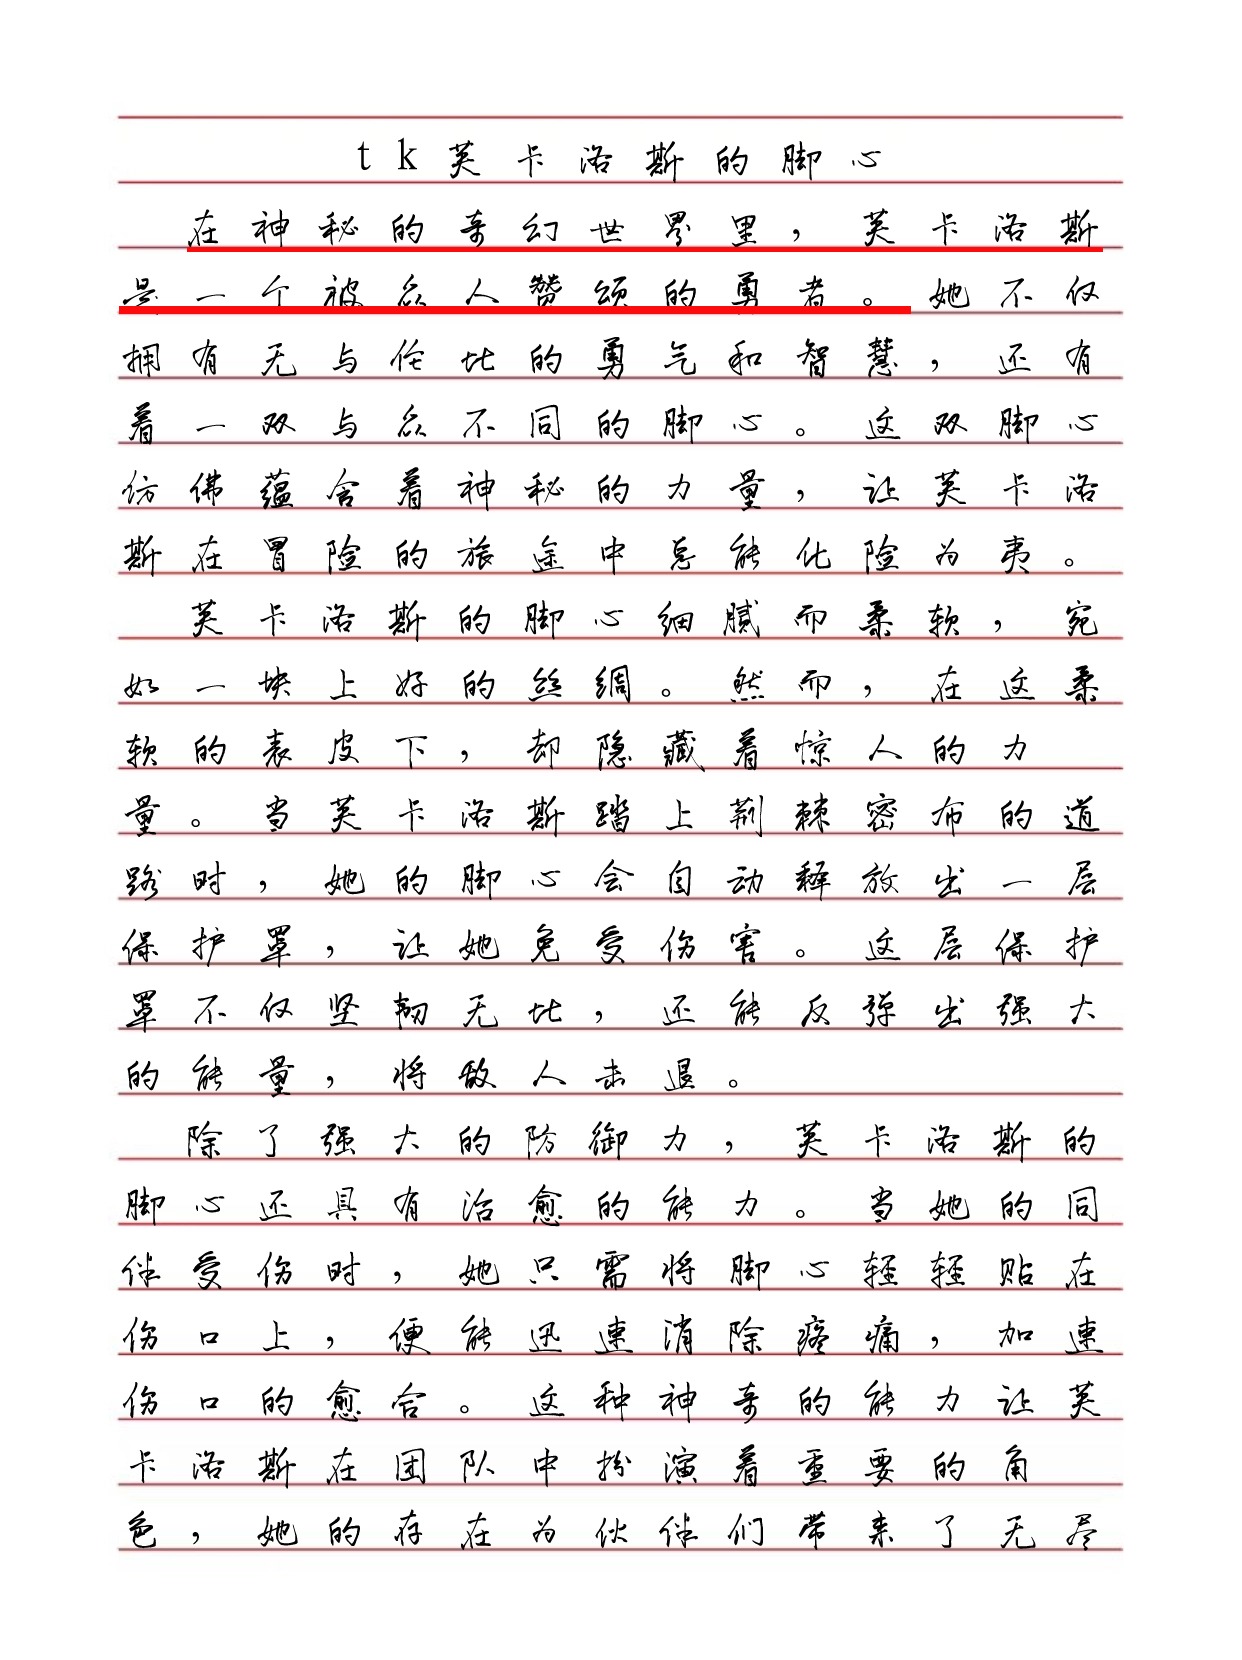 tk芙卡洛斯的脚心
在神秘的奇幻世界里，芙卡洛斯
是一个被众人赞颂的勇者。她不仅
拥有无与伦比的勇气和智慧，还有
着一双与众不同的脚心。这双脚心
仿佛蕴含着神秘的力量，让芙卡洛
斯在冒险的旅途中总能化险为夷。
芙卡洛斯的脚心细腻而柔软，宛
如一块上好的丝绸。然而，在这柔
软的表皮下，却隐藏着惊人的力
量。当芙卡洛斯踏上荆棘密布的道
路时，她的脚心会自动释放出一层
保护罩，让她免受伤害。这层保护
罩不仅坚韧无比，还能反弹出强大
的能量，将敌人击退。
除了强大的防御力，芙卡洛斯的
脚心还具有治愈的能力。当她的同
伴受伤时，她只需将脚心轻轻贴在
伤口上，便能迅速消除疼痛，加速
伤口的愈合。这种神奇的能力让芙
卡洛斯在团队中扮演着重要的角
色，她的存在为伙伴们带来了无尽